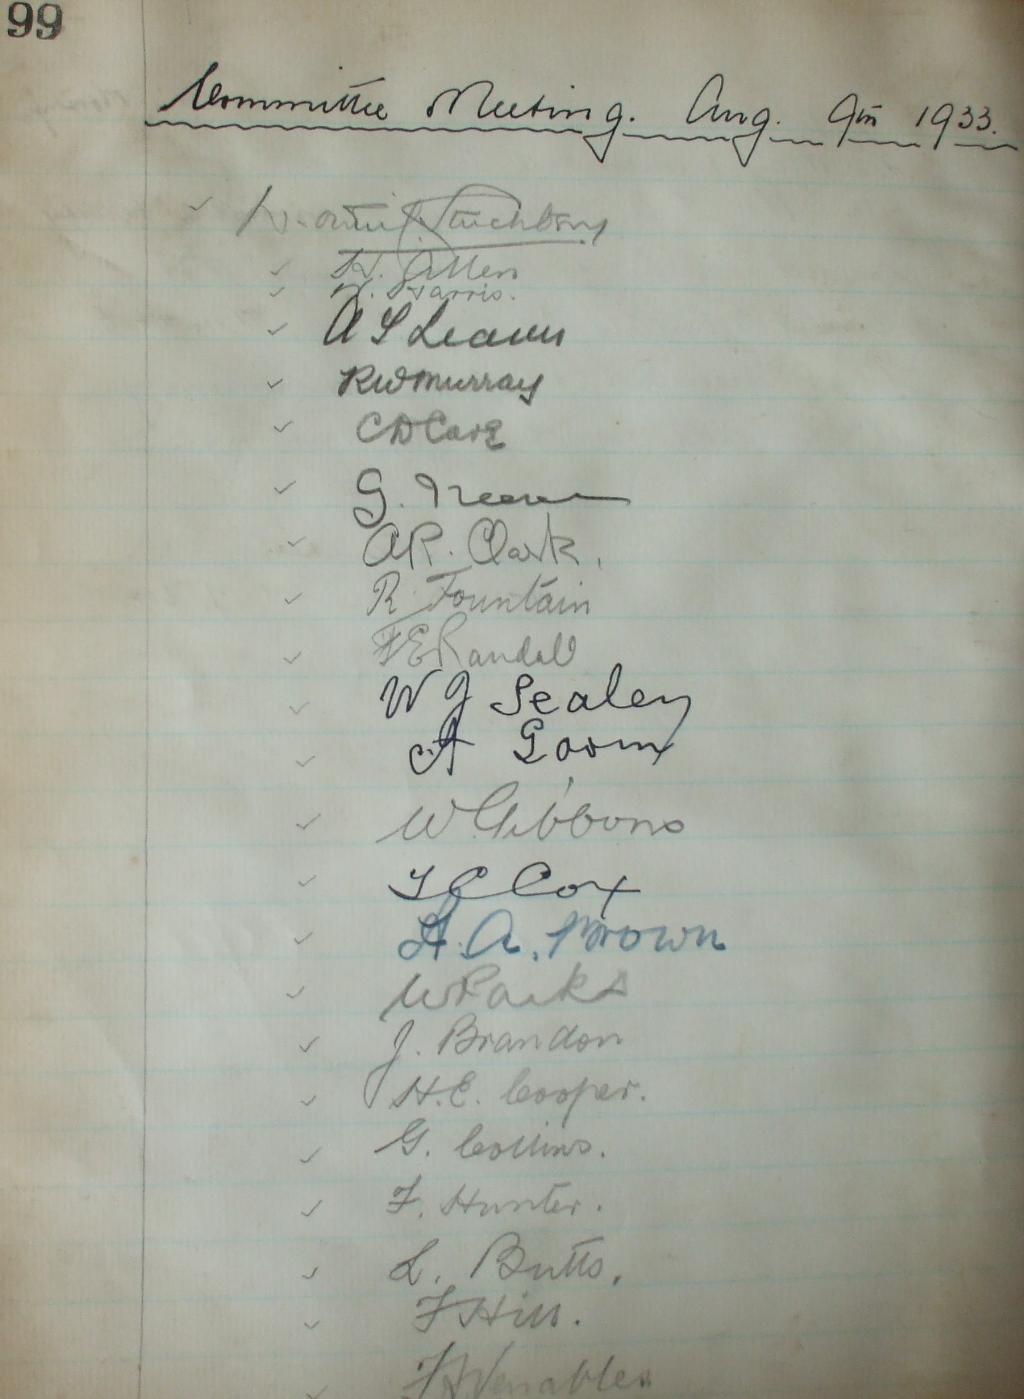 99
Committee Meeting. Aug. 9th 1933.
H. Allen
H. Harris.
A S
RW Murray
C D Cave
G.
A R. Clark.
R Fountain
F E Randall
W J Sealey
A Goom
W Gibbons
T C Cox
H. A. Brown
W Parks
J. Brandon
H. E. Cooper.
G. Collins.
F. Hunter.
L. Butts.
F Hill.
Venables